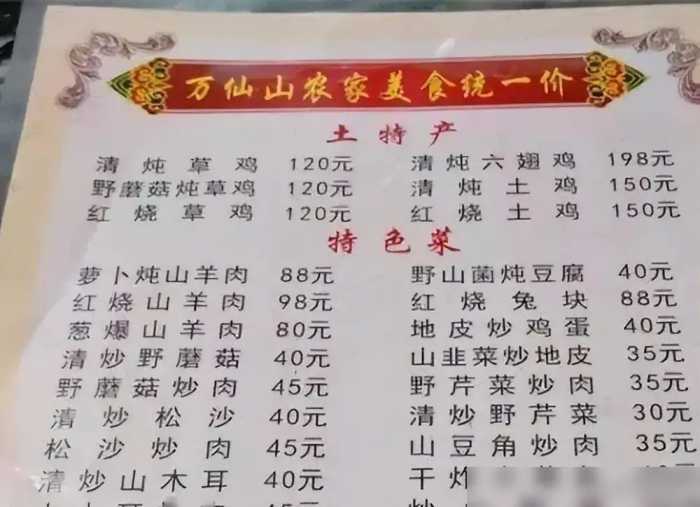 万仙山农家美食统一价
土特产
清炖草鸡 120元 清炖六翅鸡 198元
野蘑菇炖草鸡 120元 清炖土鸡 150元
红烧草鸡 120元 红烧土鸡 150元
特色菜
萝卜炖山羊肉 88元 野山菌炖豆腐 40元
红烧山羊肉 98元 红烧兔块 88元
葱爆山羊肉 80元 地皮炒鸡蛋 40元
清炒野蘑菇 40元 山韭菜炒地皮 35元
野蘑菇炒肉 45元 野芹菜炒肉 35元
清炒松沙 40元 清炒野芹菜 30元
松沙炒肉 45元 山豆角炒肉 35元
清炒山木耳 40元 干炸